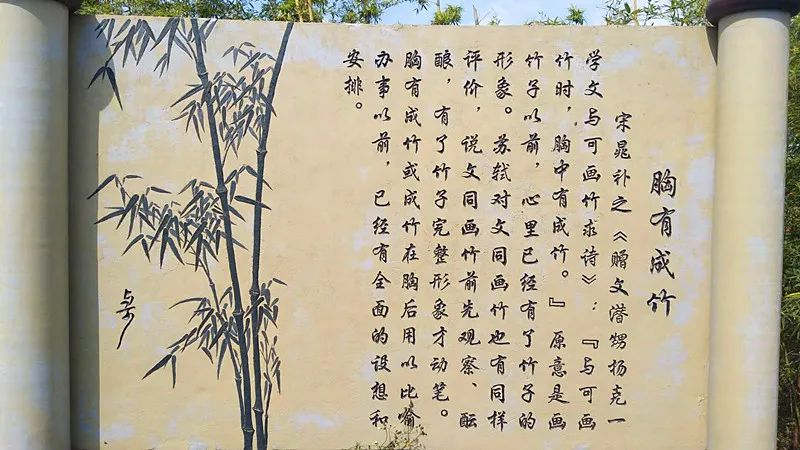 胸有成竹
宋晁补之《赠文潜甥扬克一
学文与可画竹求诗》：『与可画
竹时，胸中有成竹。』原意是画
竹子以前，心里已经有了竹子的
形象。苏轼对文同画竹也有同样
评价，说文同画竹前先观察、酝
酿，有了竹子完整形象才动笔。
胸有成竹或成竹在胸后用以比喻
办事以前，已经有全面的设想和
安排。